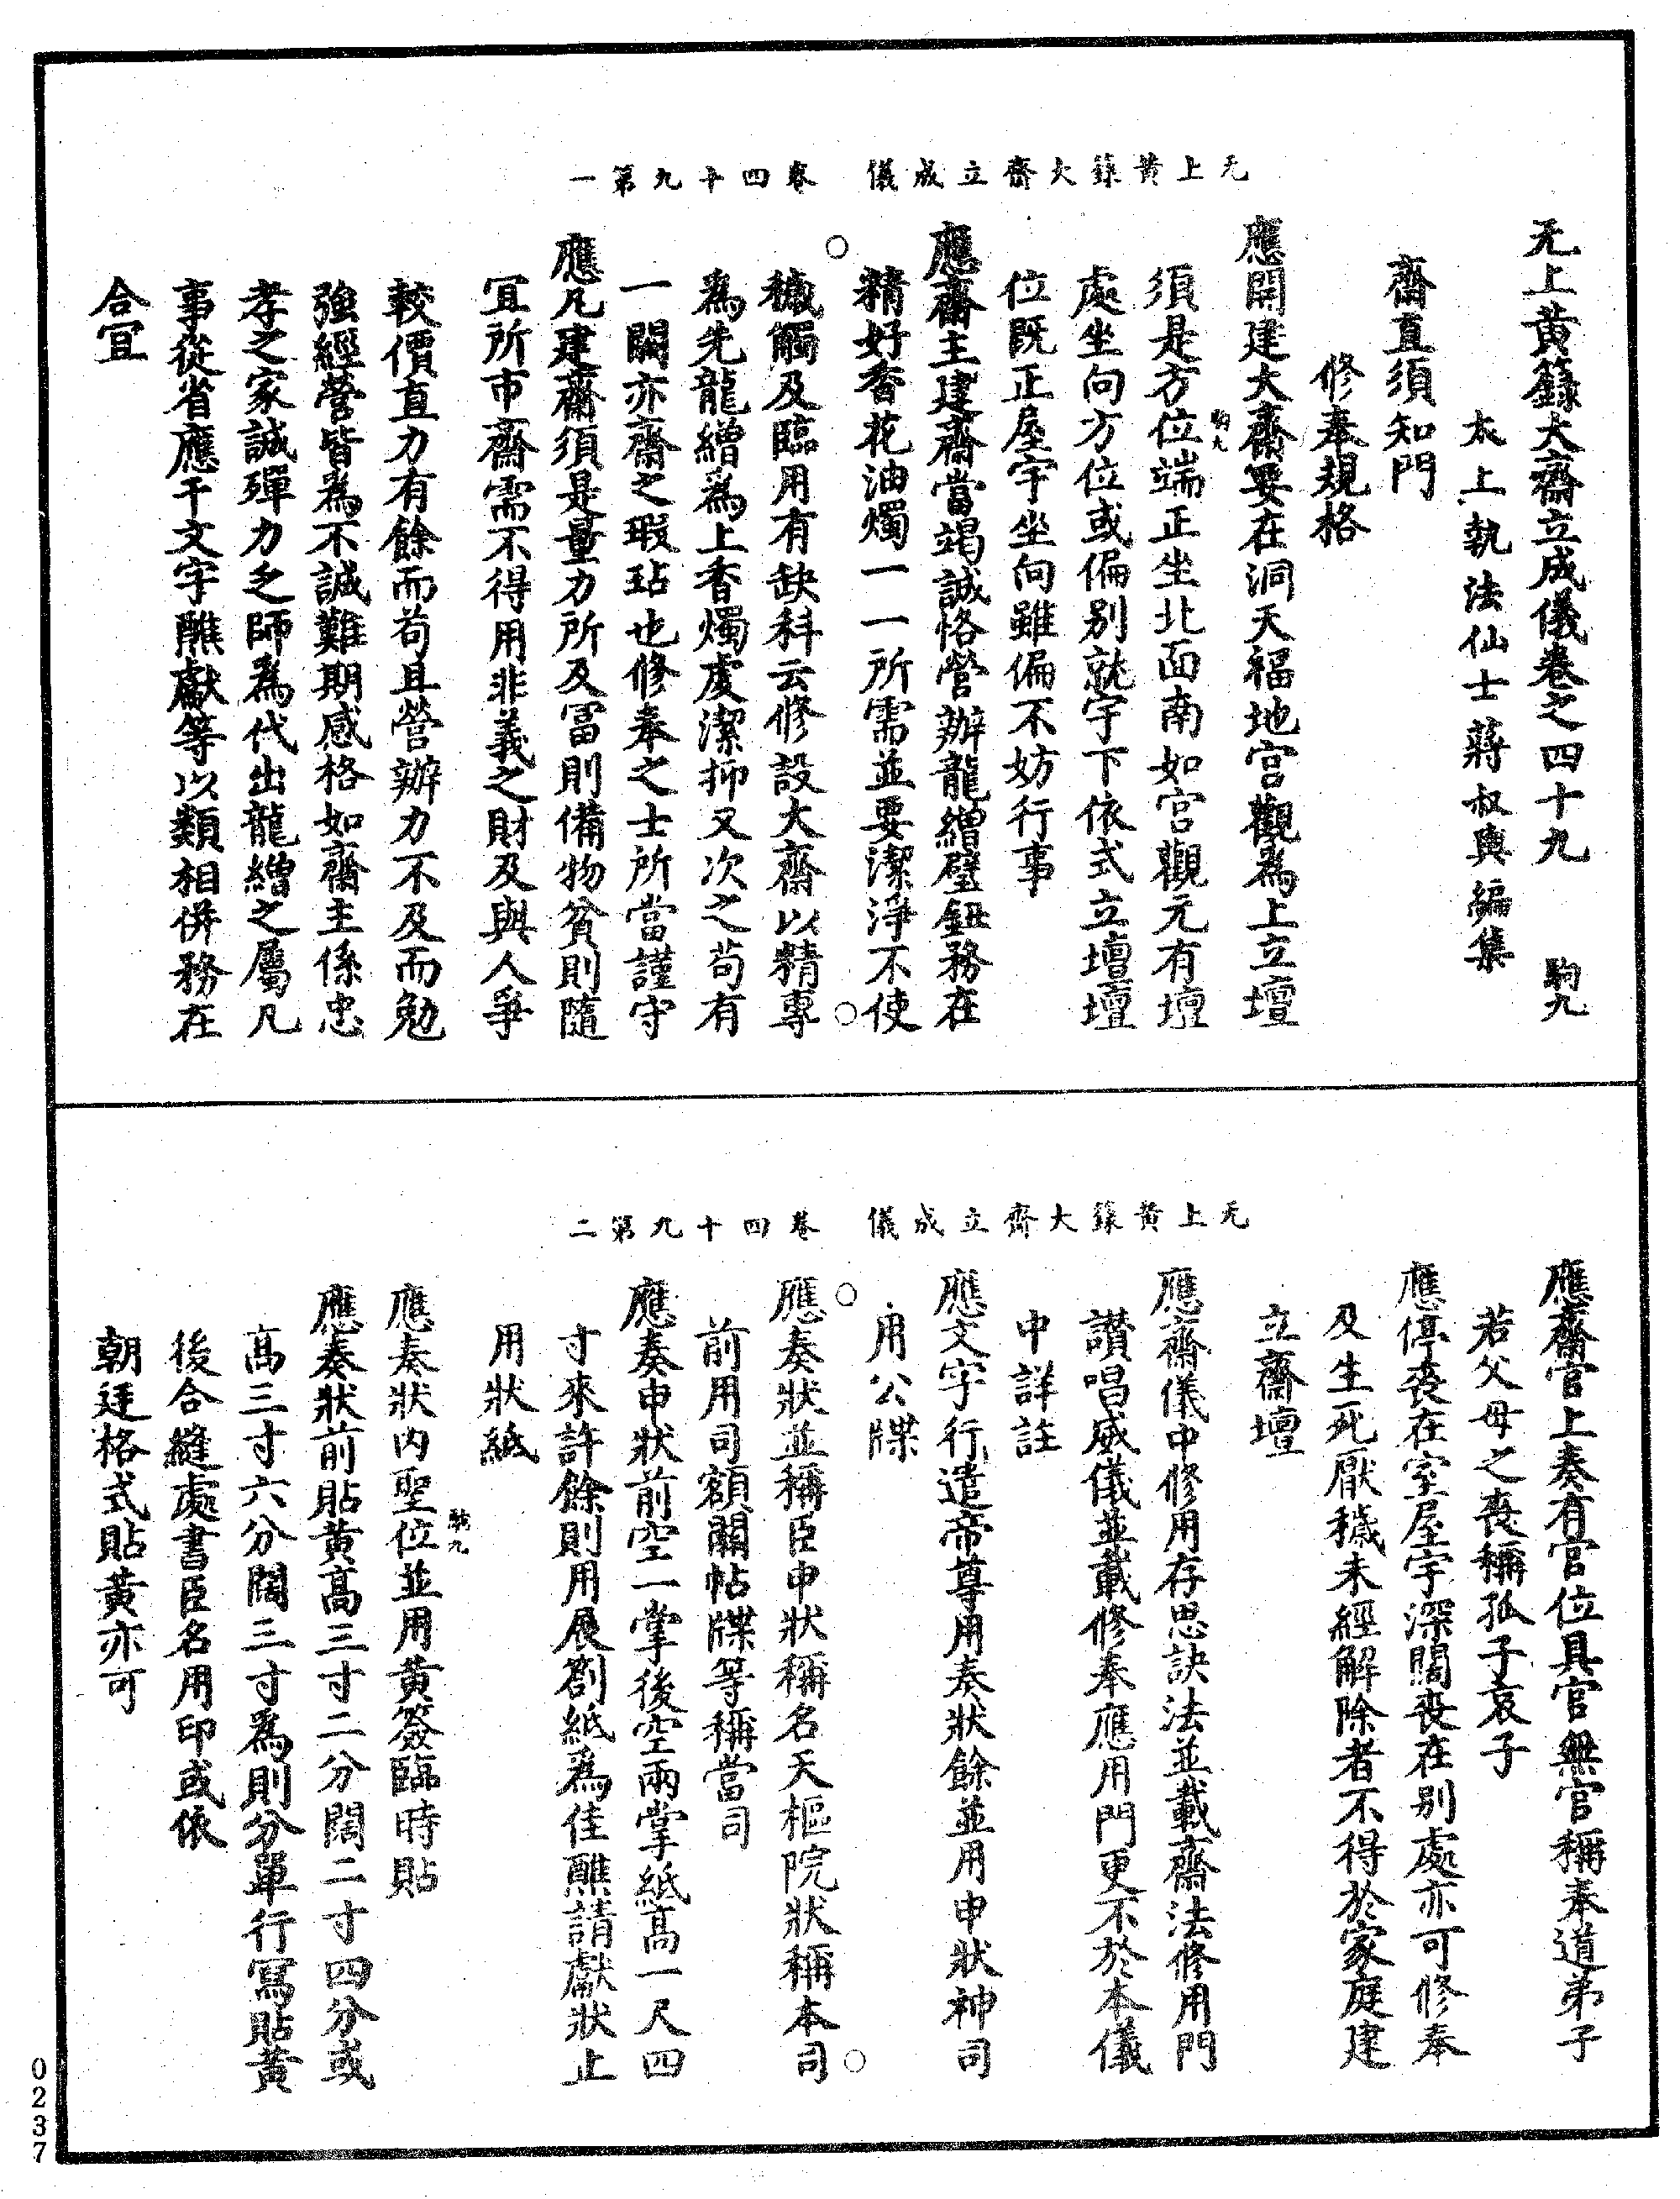 无上黃籙大齋立成儀　卷四十九第一
无上黃籙大齋立成儀卷之四十九　駒九
太上執法仙士蔣叔輿編集
齋直須知門
修奉規格
應開建大齋要在洞天福地宮觀為上立壇
須是方位端正坐北面南如宮觀元有壇
處坐向方位或偏別就宇下依式立壇壇
位既正屋宇坐向雖偏不妨行事
應齋主建齋當竭誠恪營辦龍繒璧鈕務在
精好香花油燭一一所需並要潔淨不使
穢觸及臨用有缺科云修設大齋以精專
為先龍繒為上香燭虔潔抑又次之茍有
一闕亦齋之瑕玷也修奉之士所當謹守
應凡建齋須是量力所及冨則備物貧則隨
宜所市齋需不得用非義之財及與人爭
較價直力有餘而苟且營辦力不及而勉
強經營皆為不誠難期感格如齋主係忠
孝之家誠殫力乏師為代出龍繒之屬凡
事從省應干文字醮獻等以類相併務在
合宜
駒九
无上黃籙大齋立成儀　卷四十九第二
應齋官上奏有官位具官無官稱奉道弟子
若父母之喪稱孤子哀子
應停喪在室屋宇深闊喪在別處亦可修奉
及生死厭穢未經解除者不得於家庭建
立齋壇
應齋儀中修用存思訣法並載齋法修用門
讚唱威儀並載修奉應用門更不於本儀
中詳註
應文字行遣帝尊用奏狀餘並用申狀神司
用公牒
應奏狀並稱臣申狀稱名天樞院狀稱本司
前用司額關帖牒等稱當司
應奏申狀前空一掌後空兩掌紙高一尺四
寸來許餘則用展劄紙為佳醮請獻狀止
用狀紙
駒九
應奏狀內聖位並用黃簽臨時貼
應奏狀前貼黃高三寸二分闊二寸四分或
高三寸六分闊三寸為則分單行寫貼黃
後合縫處書臣名用印或依
朝廷格式貼黃亦可
0237